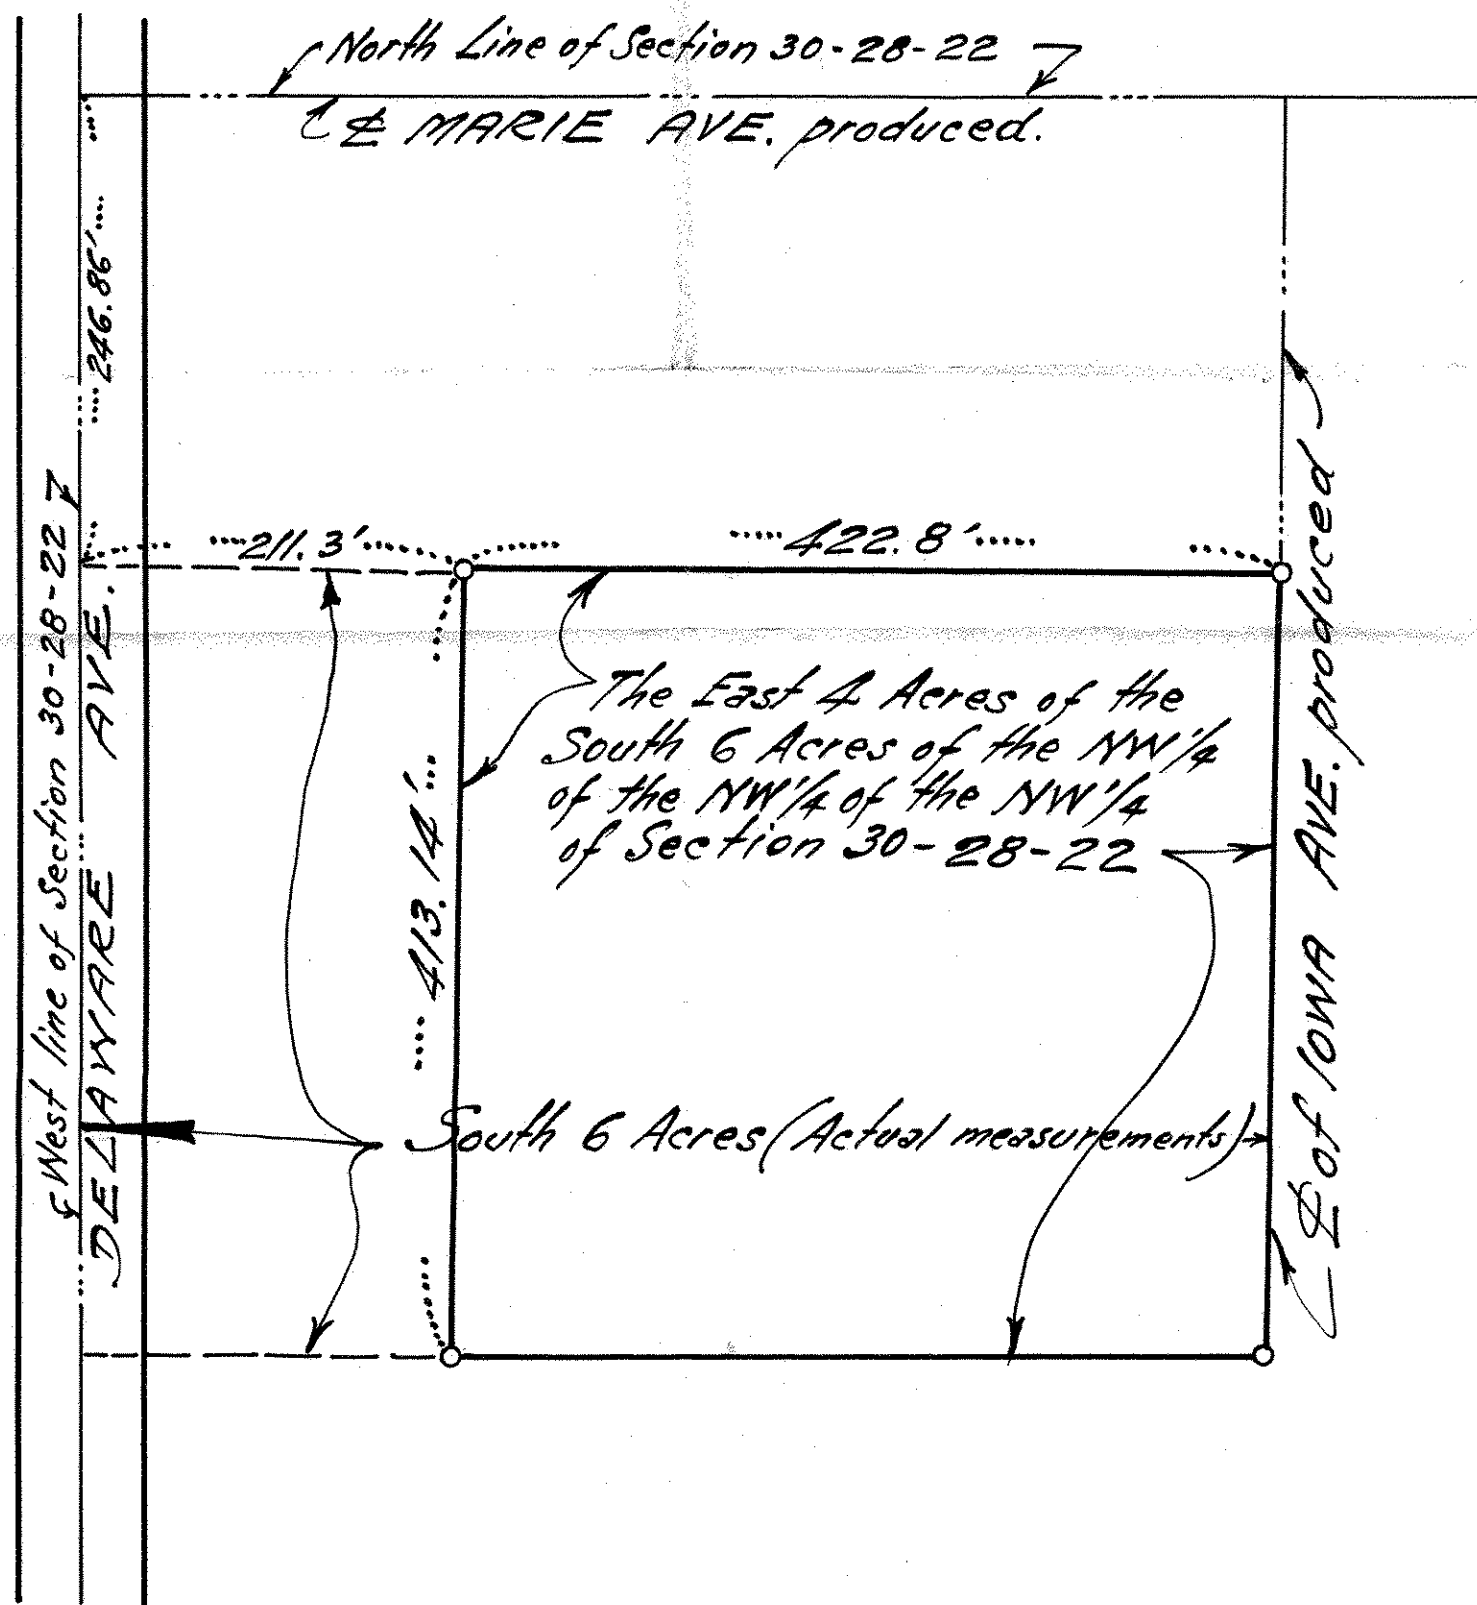 North Line of Section 30-28-22
℄ MARIE AVE. produced.
246.86'
West line of Section 30-28-22
DELAWARE AVE.
211.3'
422.8'
413.14'
The East 4 Acres of the
South 6 Acres of the NW 1/4
of the NW 1/4 of the NW 1/4
of Section 30-28-22
South 6 Acres (Actual measurements)
℄ of IOWA AVE. produced